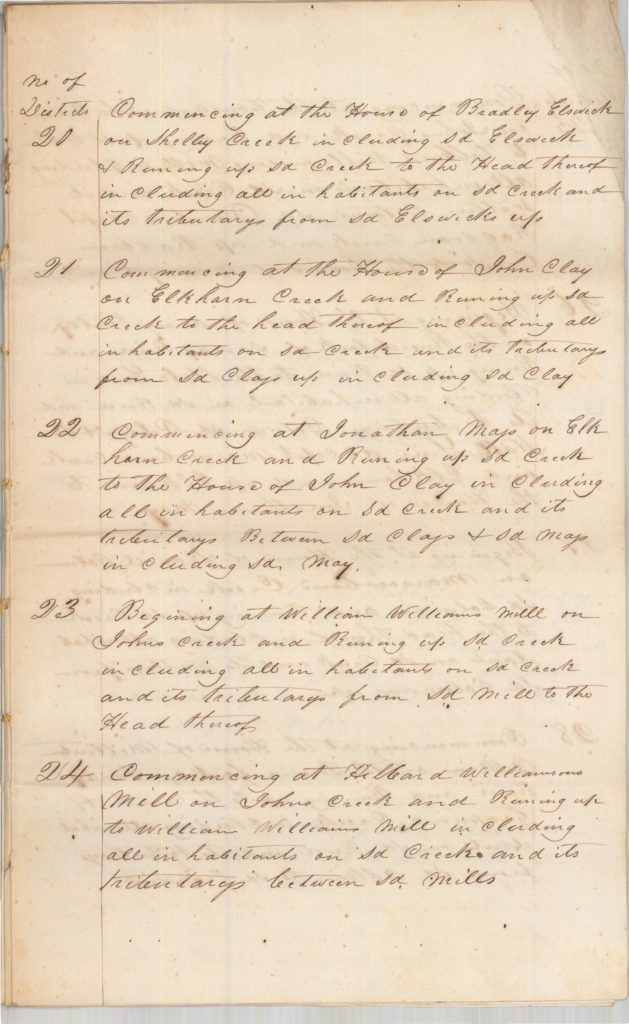 No of
Districts Commencing at the House of Bradley Elswick
20 on Shelby Creek in cluding sd Elswick
& Runing up sd Creek to the Head thereof
in cluding all in habitants on sd Creek and
its tributarys from sd Elswicks up
21 Commencing at the House of John Clay
on Elkhorn Creek and Runing up sd
Creek to the head thereof in cluding all
in habitants on sd Creek and its tributarys
from sd Clays up in cluding sd Clay
22 Commencing at Jonathan Mays on Elk
horn Creek and Runing up sd Creek
to the House of John Clay in cluding
all in habitants on sd Creek and its
tributarys Between sd Clays & sd Mays
in cluding sd. May.
23 Begining at William Williams Mill on
Johns Creek and Runing up sd Creek
in cluding all in habitants on sd Creek
and its tributarys from sd Mill to the
Head thereof
24 Commencing at Hilbard Williamsons
Mill on Johns Creek and Runing up
to William Williams Mill in cluding
all in habitants on sd Creek and its
tributarys between sd. Mills